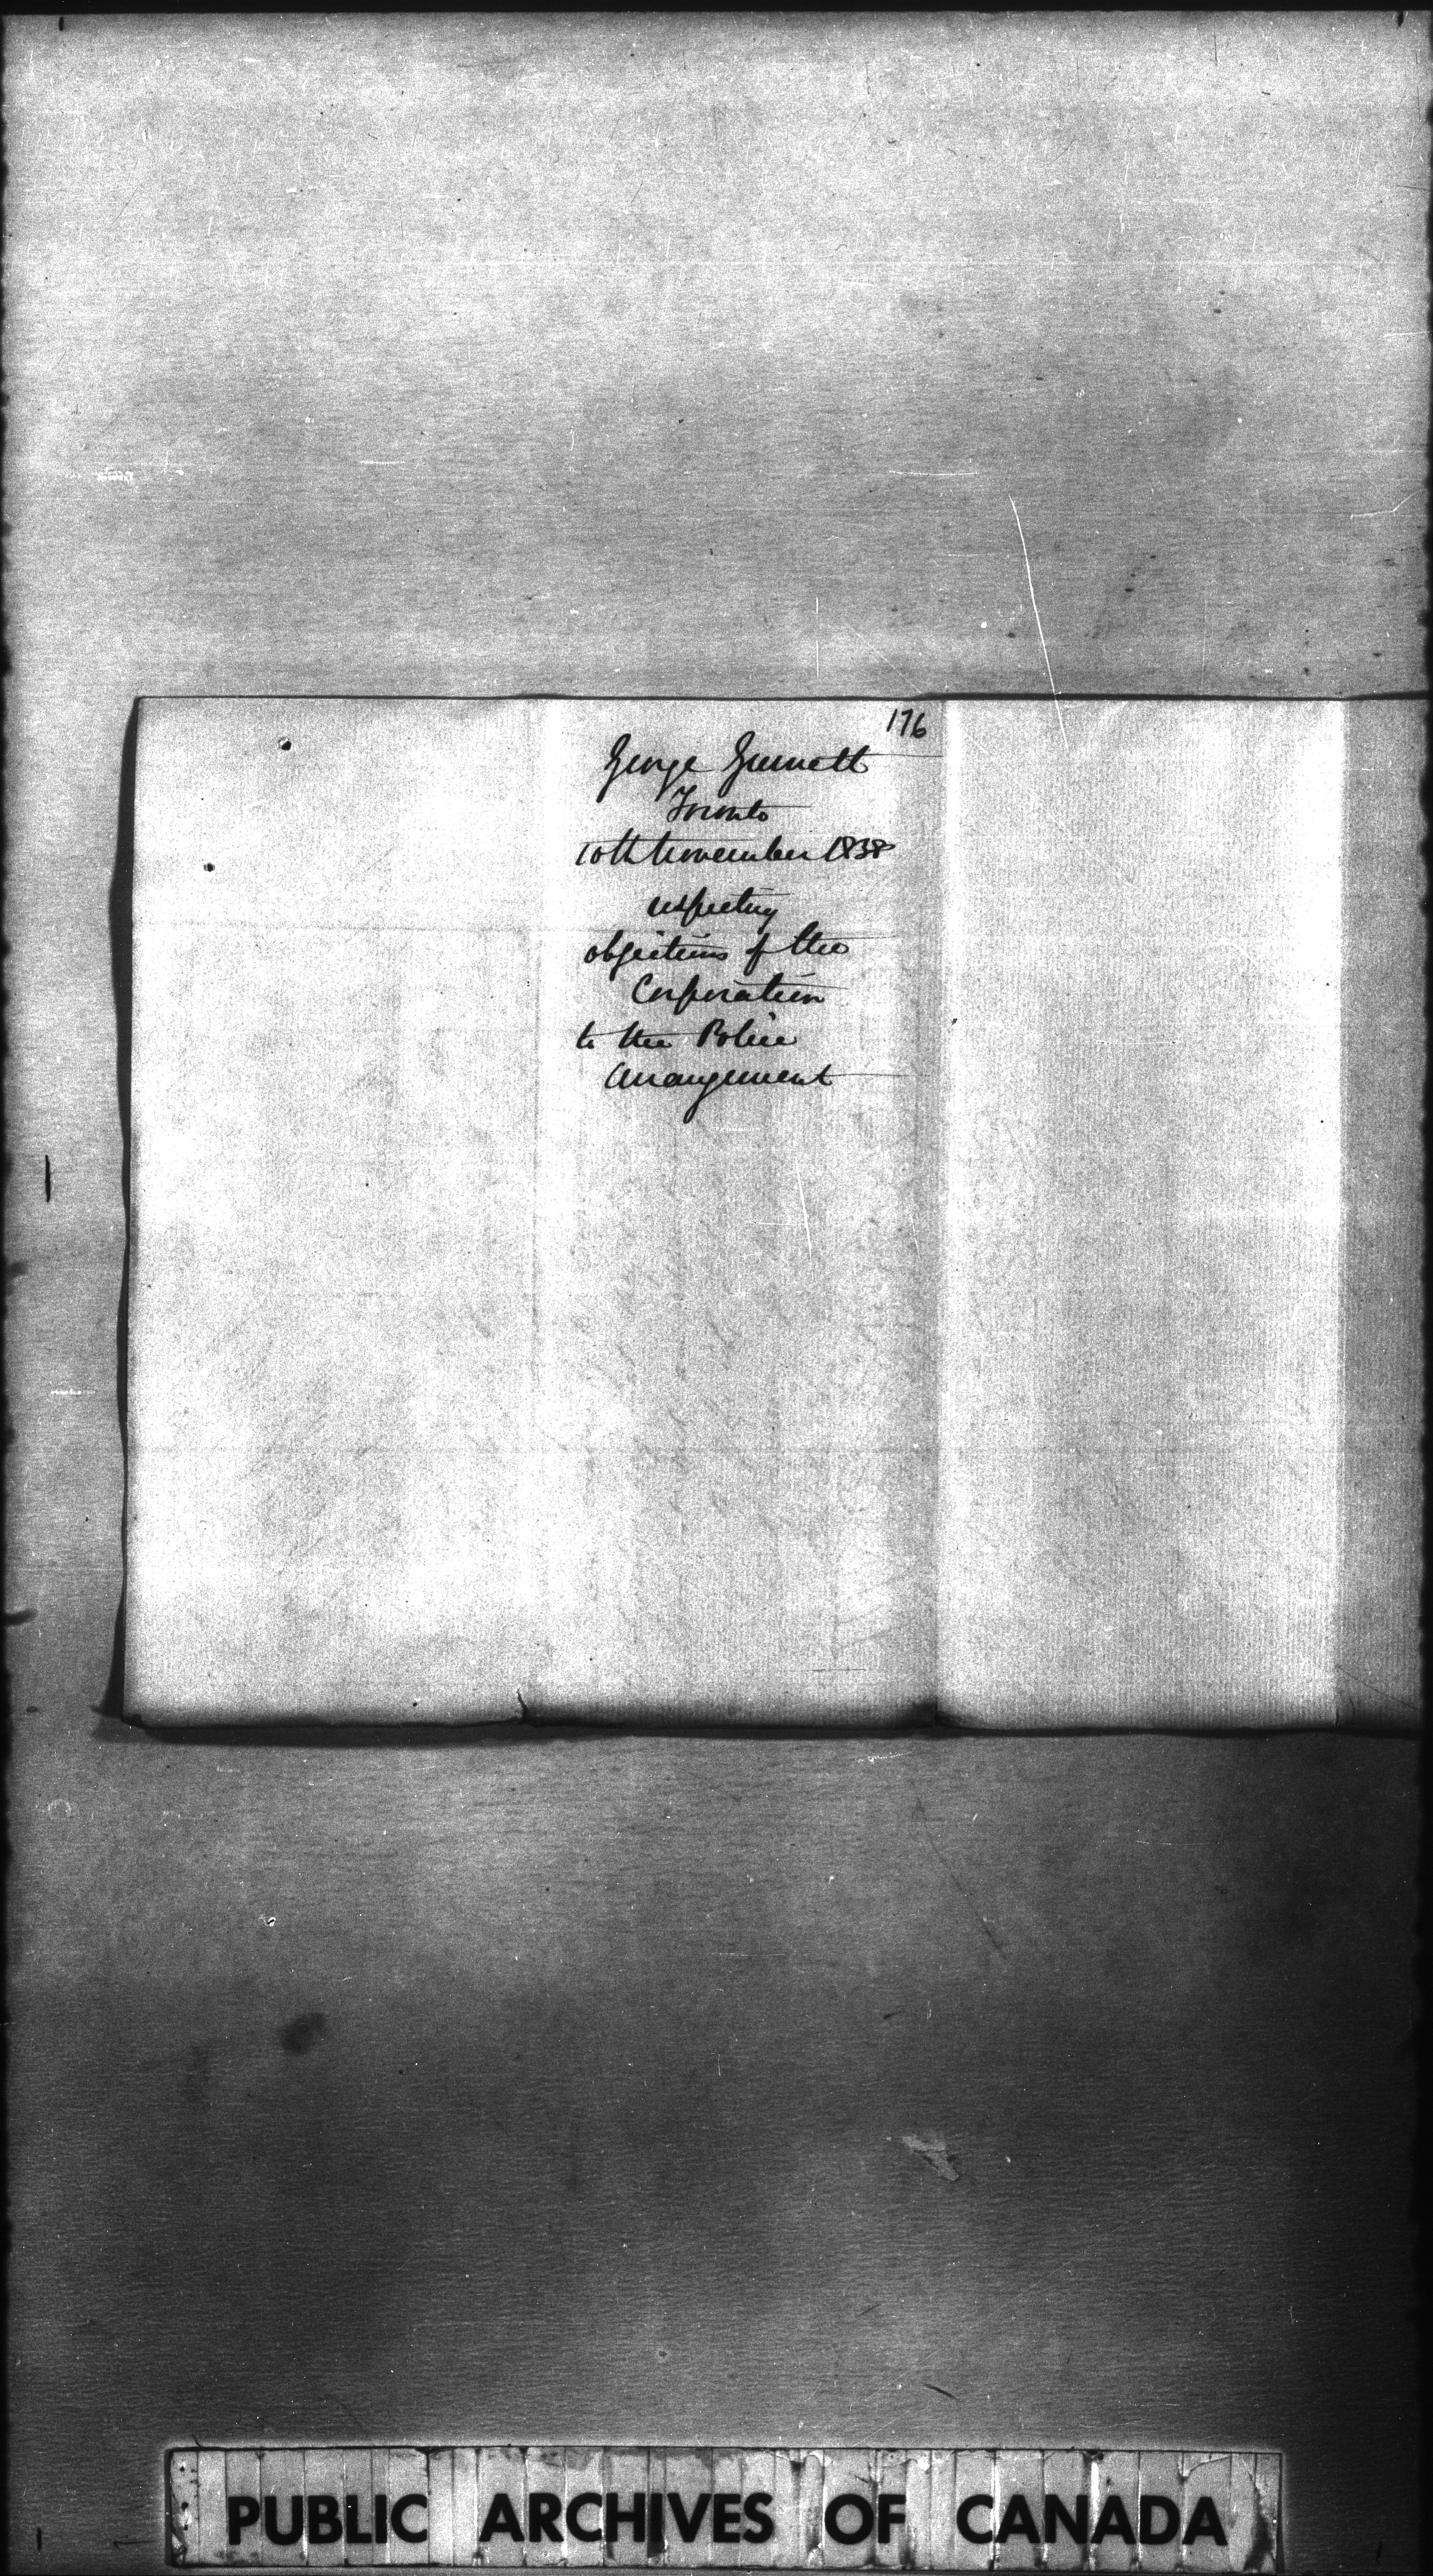 176
George Gurnett
Toronto
10th November 1838
respecting
objections of the
Corporation
to the Police
Arrangement
PUBLIC ARCHIVES OF CANADA